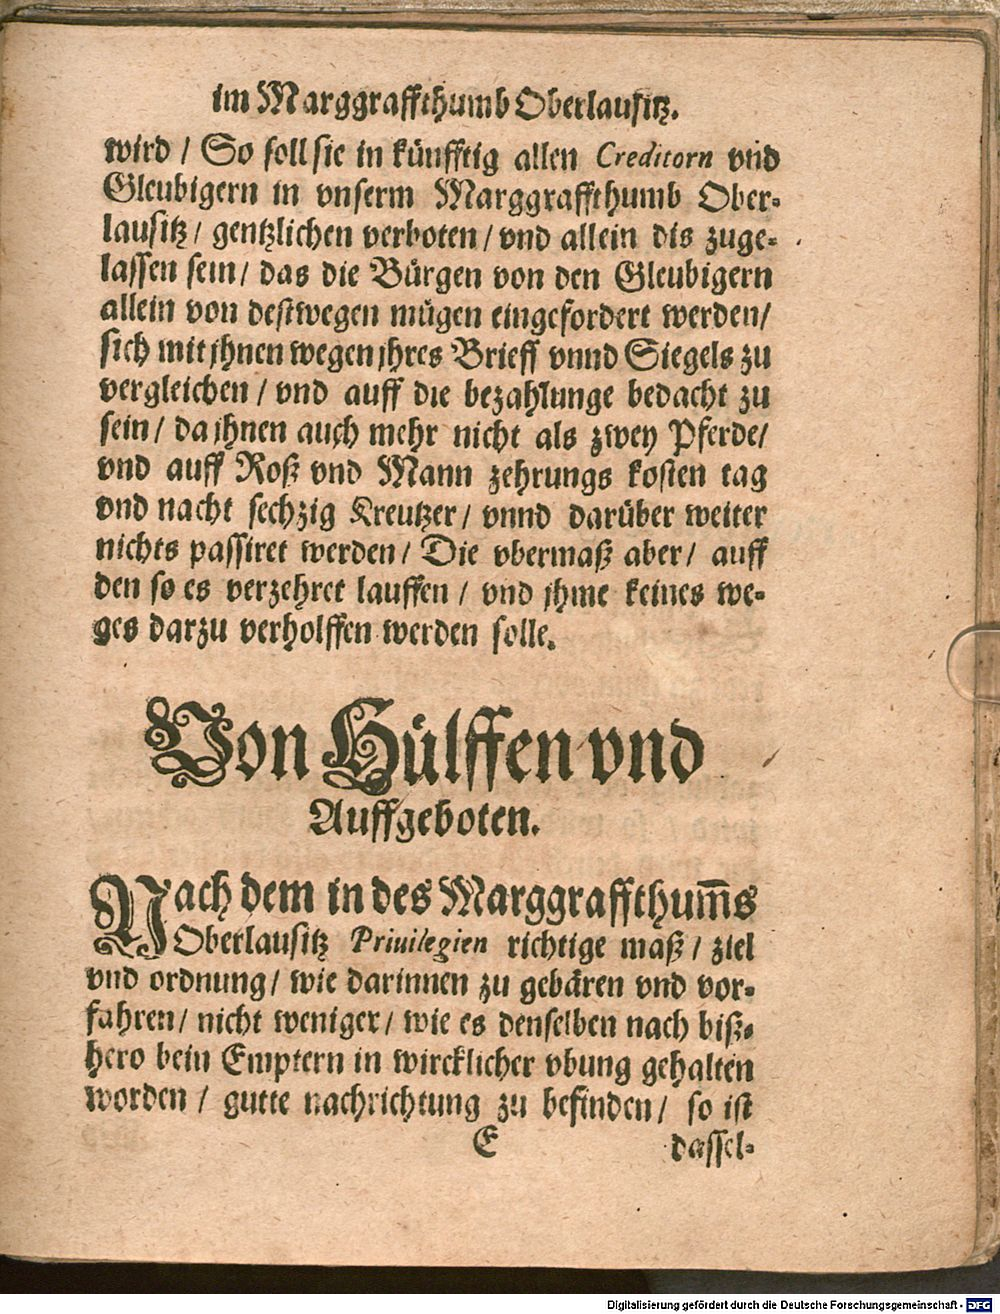 im Marggraffthumb Oberlausitz.
wird / So soll sie in künfftig allen Creditorn vnd
Gleubigern in vnserm Marggraffthumb Ober-
lausitz / gentzlichen verboten / vnd allein dis zuge-
lassen sein / das die Bürgen von den Gleubigern
allein von destwegen mügen eingefordert werden /
sich mit jhnen wegen jhres Brieff vnnd Siegels zu
vergleichen / vnd auff die bezahlunge bedacht zu
sein / da jhnen auch mehr nicht als zwey Pferde /
vnd auff Roß vnd Mann zehrungs kosten tag
vnd nacht sechzig Kreutzer / vnnd darüber weiter
nichts passiret werden / Die vbermaß aber / auff
den so es verzehret lauffen / vnd jhme keines we-
ges darzu verholffen werden solle.
Von Hülffen vnd
Auffgeboten.
Nach dem in des Marggraffthum̅s
Oberlausitz Priuilegien richtige maß / ziel
vnd ordnung / wie darinnen zu gebären vnd vor-
fahren / nicht weniger / wie es denselben nach biß-
hero bein Emptern in wircklicher vbung gehalten
worden / gutte nachrichtung zu befinden / so ist
E dassel-
Digitalisierung gefördert durch die Deutsche Forschungsgemeinschaft - DFG